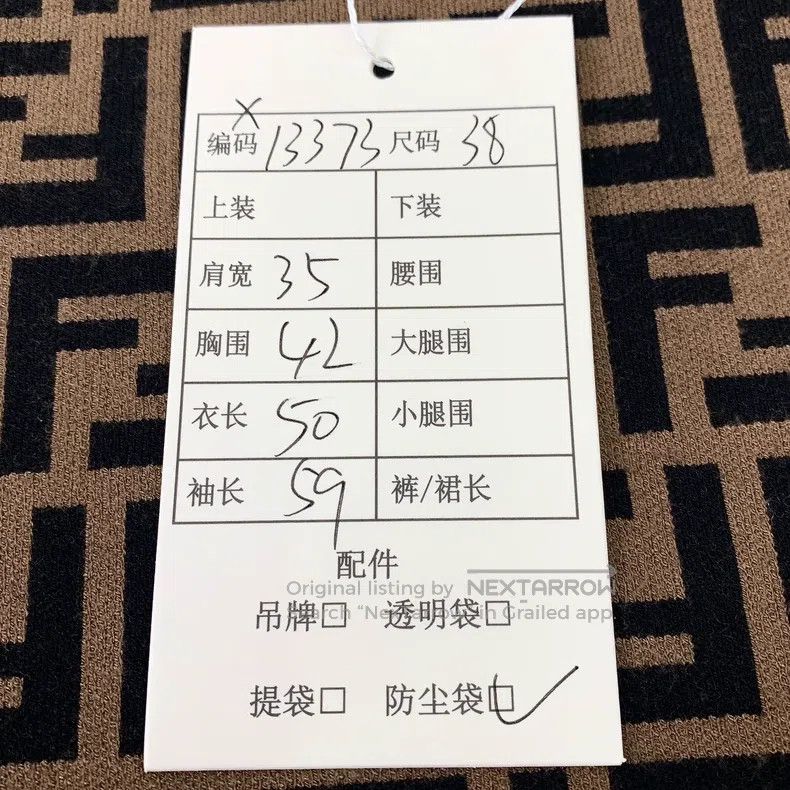 X
编码 13373 尺码 38
上装 下装
肩宽 35 腰围
胸围 42 大腿围
衣长 50 小腿围
袖长 59 裤/裙长
配件
Original listing by NEXTARROW
吊牌□ 透明袋□
in Grailed app
提袋□ 防尘袋□✓